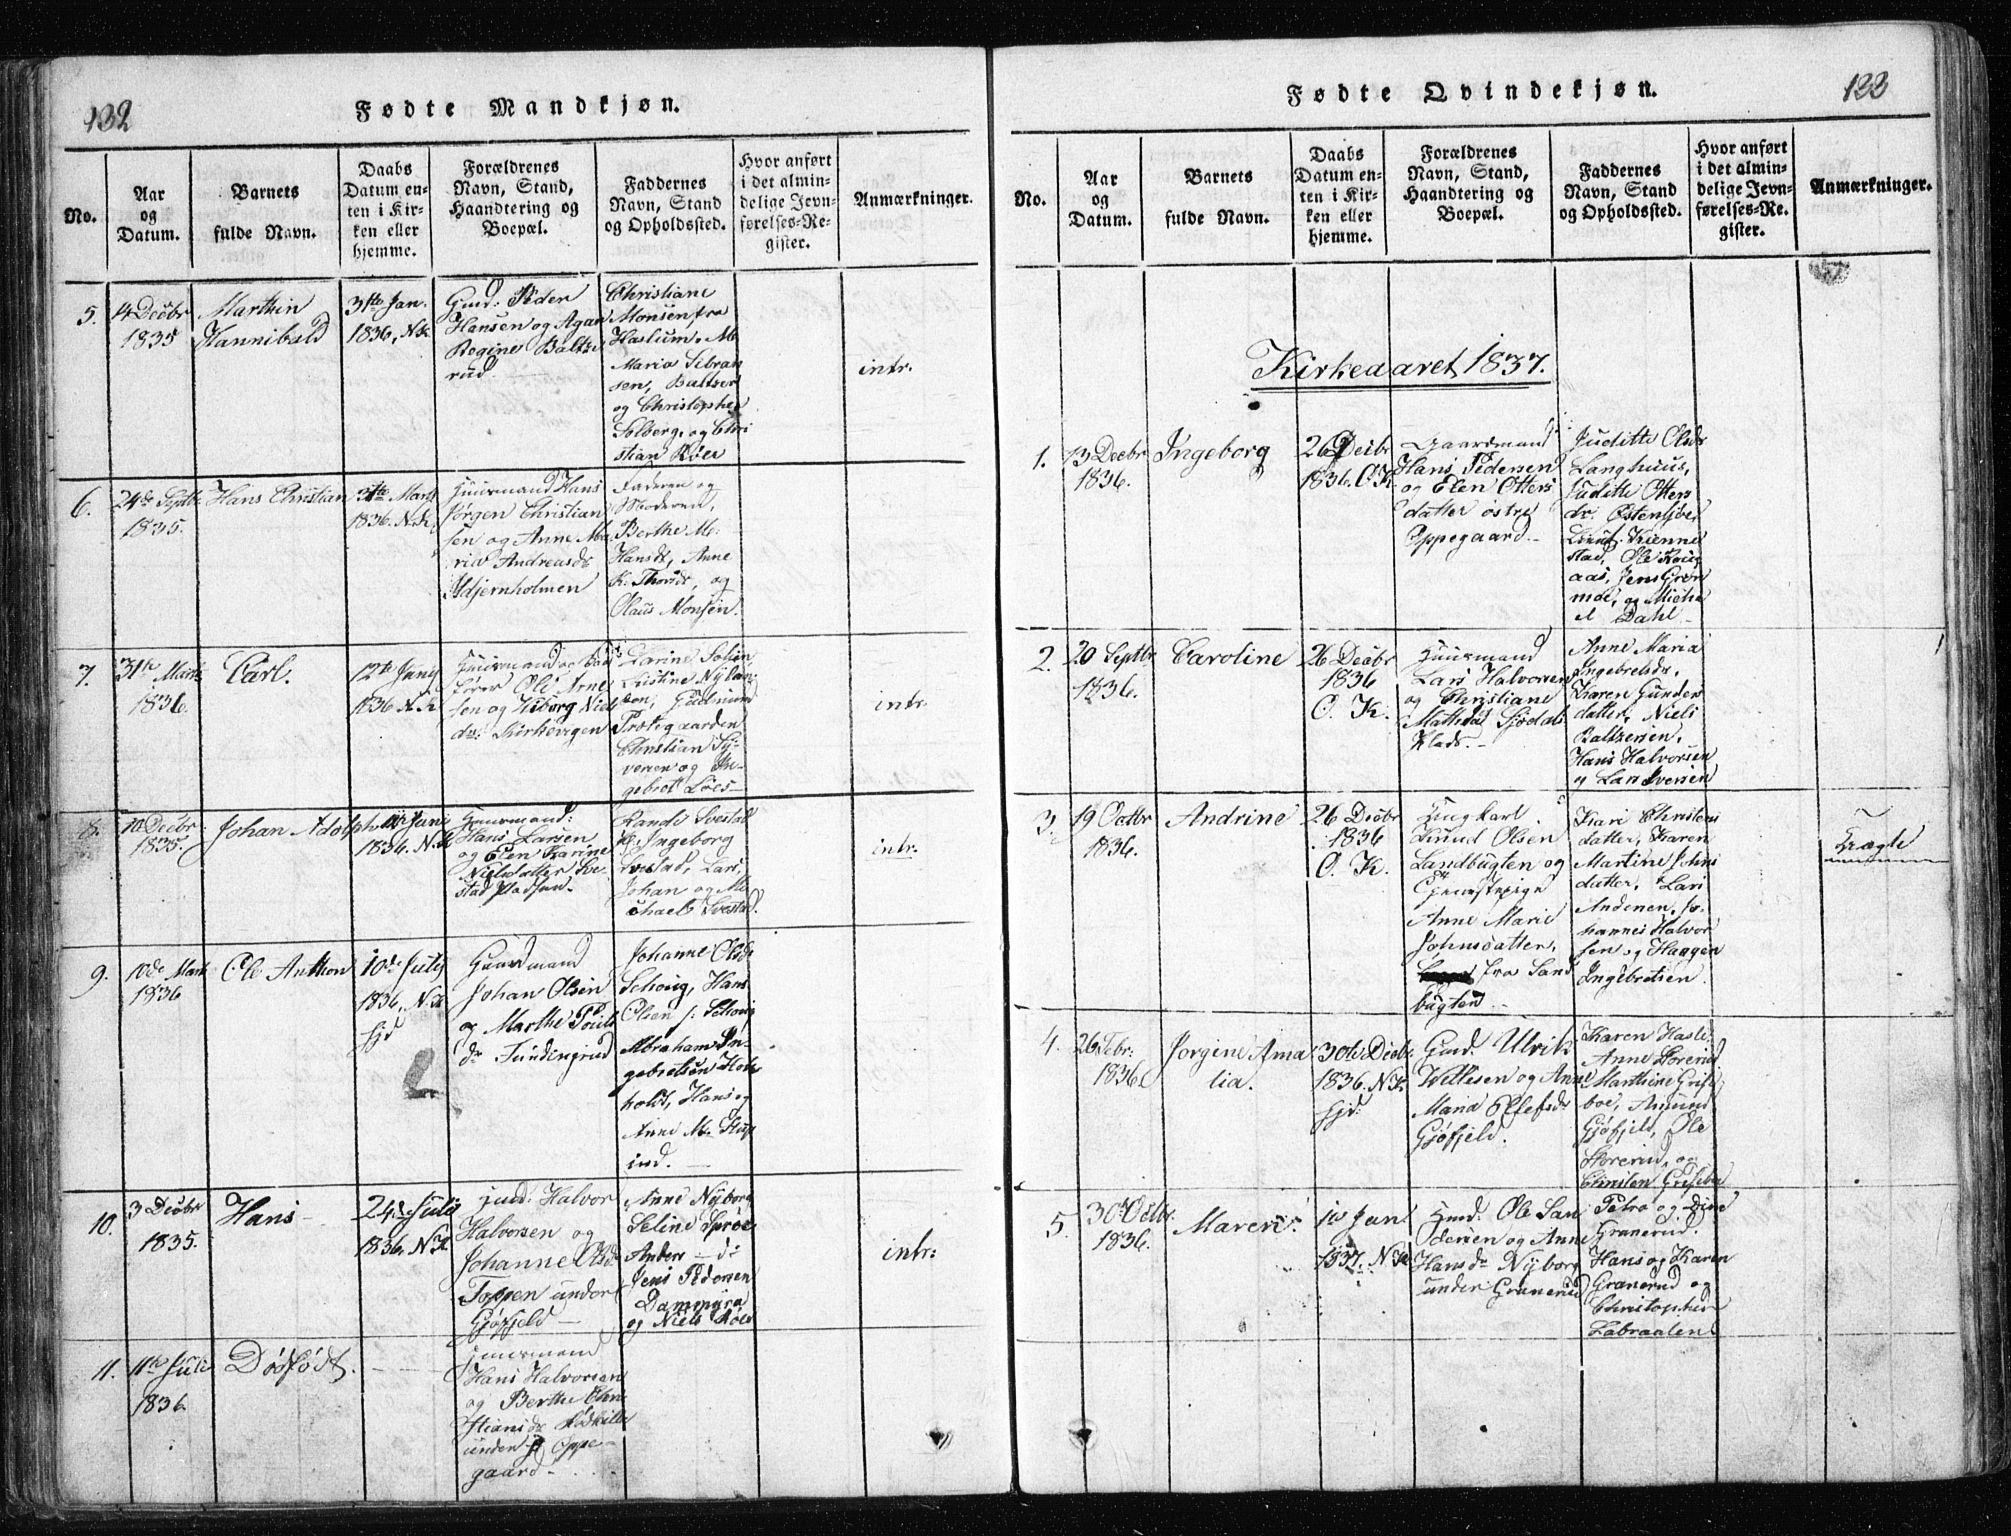 132
Fødte Mandkjøn.
No.
Aar
og
Datum.
Barnets
fulde Navn.
Daabs
Datum en-
ten i Kir-
ken eller
hjemme.
Forældrenes
Navn, Stand,
Haandtering og
Boepæl.
Faddernes
Navn, Stand
og Opholdssted.
Hvor anført
i det almin-
delige Jevn-
førelses-Re-
gister.
Anmærkninger.
5.
14 Decbr
1835
Marthin
Hannibald
31te Jan.
1836, N.K
Gmd: Peder
Hansen og Agan
Regine Baltze
rud
Christiane
Monsen fra
Haslum, M
Maria Sebran
sen, Baltzer
og Christopher
Solberg, og Chri
stian Röer
intr.
6.
24de Septb.
1835.
Hans Christian
1836. N.K.
Huusmand Hans
Jørgen Christian
sen og Anne Ma
ria Andreasdr
Faderen og
Moderen,
Berthe M.
Hansdr, Anne
K. Thorsdr, og
Olaus Monsen.
7.
31te Marts
1836.
Carl.
12te Juny
1836 N.K
Ole Arne
sen og Niels
dr. Kirkevigen
Christian Sy-
versen og In-
gebret Löes
intr.
8.
10 Decbr
1835.
Johan Adolph
1836. N.K
Huusmand:
Hans Larsen
og Elen Karine
Nielsdatter Sve
stad Pladsen.
Ingeborg
Svestad, Lars,
Johan og Mi
chael Svestad.
intr.
9.
10de Mart
1836
Ole Anthon
10de July
1836, N.K
hjd
Gaardmand
Johan Olsen
og Marthe Pouls
dr
Johanne Olsdr
Schoug, Hans
Olsen Schoug
Abraham In-
gebretsen
holdt, Hans og
Anne M.
ind.
10.
3 Decbr
1835.
Hans
24d Julii
1836, N.K
Halvor
Halvorsen og
Johanne Olsdr
Toppen under
Gjøfjeld
Anne Nyborg
Seline Sprøe
Anders - d:
Jens Pedersen
Dammyra
og Niels Röer
intr:
11.
11te Juli
1836
Dödfödt.
Huusmand
Hans Halvorsen
og Berthe Chri
stiansdr
under Oppe-
gaard.
Fødte Qvindekjøn.
133
No.
Aar
og
Datum.
Barnets
fulde Navn.
Daabs
Datum en-
ten i Kir-
ken eller
hjemme.
Forældrenes
Navn, Stand,
Haandtering og
Boepæl.
Faddernes
Navn, Stand
og Opholdssted.
Hvor anført
i det almin-
delige Jevn-
førelses-Re-
gister.
Anmærkninger.
Kirkeaaret 1837.
1.
13 Decbr
1836.
Ingeborg
26 Decbr
1836. O.K.
Gaardmand
Hans Pedersen
og Elen Otters
datter østre
Oppegaard.
Juditte Olsdr
Langhuus,
Juditte Otters
dr. Østensjøe,
stad, Ole
aas, Jens Grøn
moe, og Micha
el Dahl
2.
20 Septbr
1836.
Caroline
26 Decbr
1836
O. K.
Huusmand
Lars Halvorsen
og Christiane
Anne Maria
Ingebretsdr,
Karen Gunders
datter, Niels
Baltzersen,
Hans Halvorsen
og Lars Iversen
3.
19 Octbr
1836.
Andrine
26 Decbr
1836
O. K.
Ungkarl
Knud Olsen
Sandbugten og
Anne Marie
Johnsdatter,
fra Sand
bugten
Kari Christens
datter, Karen
Martine Johns
datter, Lars
Andersen, Jo-
hannes Halvor
sen og Haagen
Ingebretsen.
Uægte
4.
26 Febr:
1836.
Jorgine Ama
lia.
30te Decbr
1836. N.K.
hjd:
Gmd. Ulrik
Willesen og Anne
Maria Ellefsdr
Gjøfjeld.
Karen Hasle,
Anne Storerud
Marthine
Amund
Gjøfjeld, Ole
Storerud, og
Christen
5.
30 Octbr.
1836.
Maren.
1837. N.K.
Hmd: Ole San
dersen og Anne
Hansdr Nyborg
under Granerud
Petra og Dine
Granerud.
Hans og Karen
Granerud og
Christopher
Labraaten